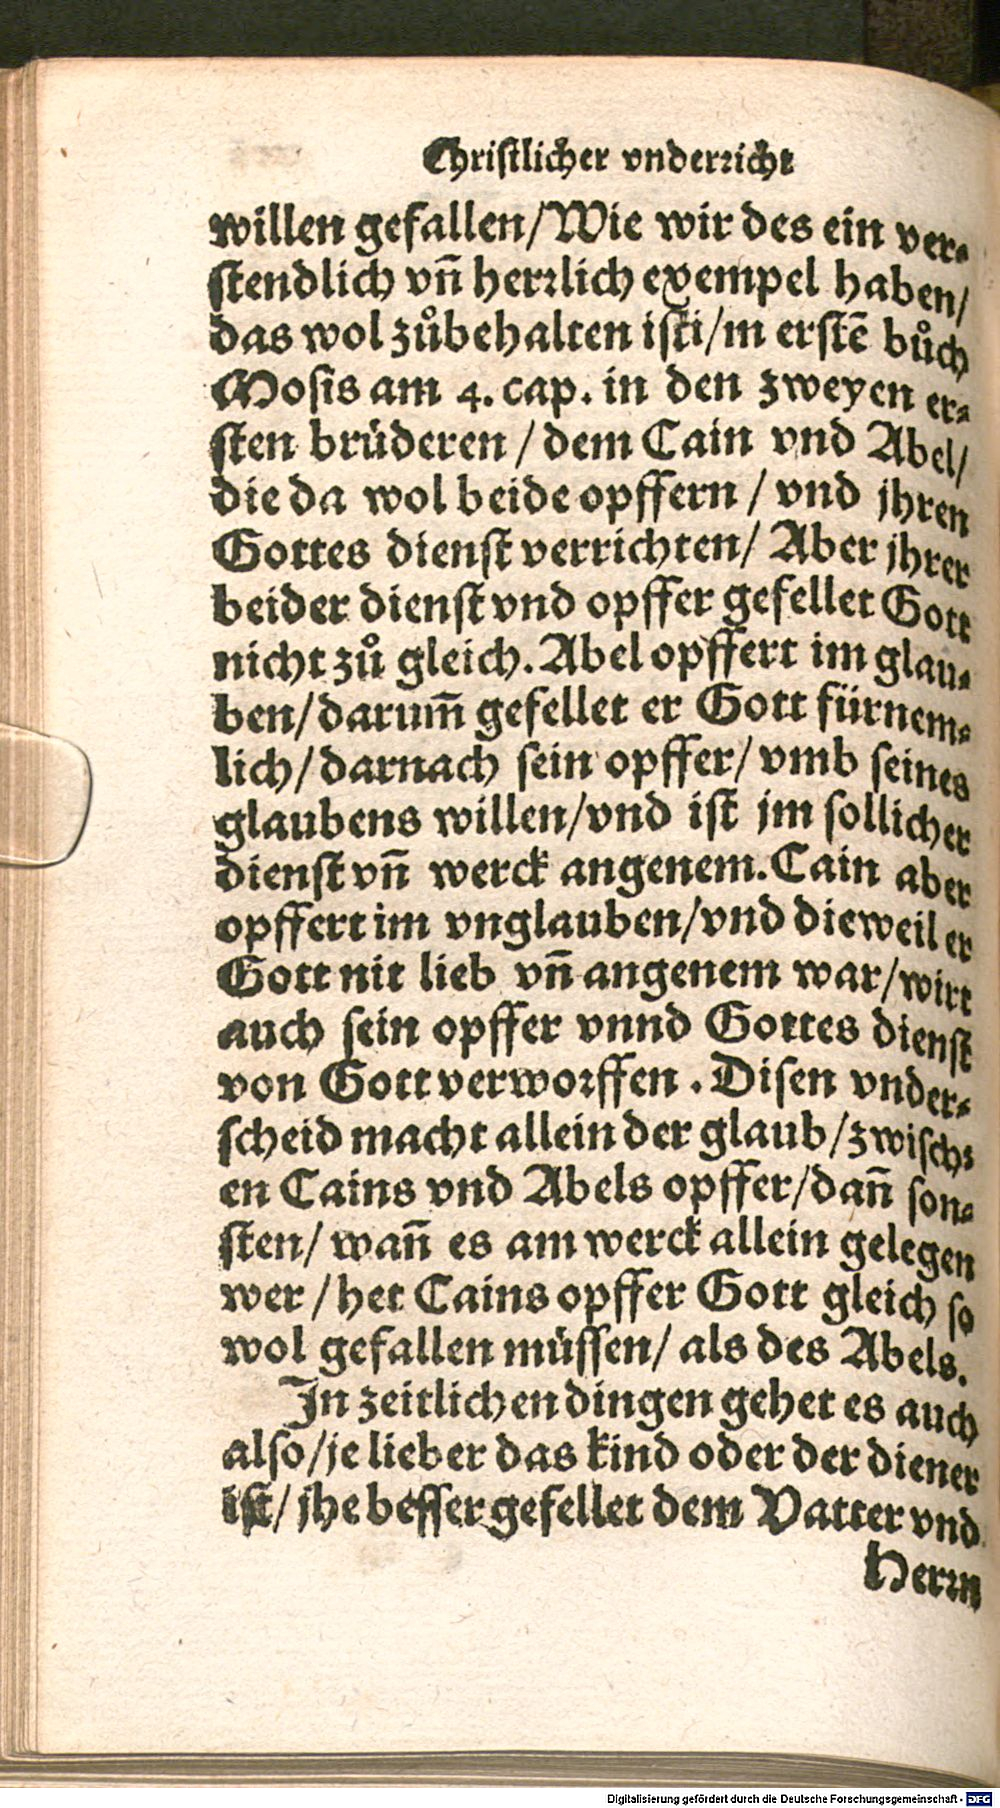 Christlicher vnderꝛicht
willen gefallen/Wie wir des ein ver⸗
stendlich vñ herꝛlich exempel haben/
das wol zůbehalten isti/m erstẽ bůch
Mosis am 4. cap. in den zweyen er⸗
sten brüderen / dem Cain vnd Abel/
die da wol beide opffern / vnd jhren
Gottes dienst verrichten/ Aber jhrer
beider dienst vnd opffer gefellet Gott
nicht zů gleich. Abel opffert im glau⸗
ben/darum̃ gefellet er Gott fürnem⸗
lich/darnach sein opffer/ vmb seines
glaubens willen/vnd ist jm sollicher
dienst vñ werck angenem. Cain aber
opffert im vnglauben/vnd dieweil er
Gott nit lieb vñ angenem war/wirt
auch sein opffer vnnd Gottes dienst
von Gott verwoꝛffen . Disen vnder⸗
scheid macht allein der glaub/zwisch⸗
en Cains vnd Abels opffer/dañ son⸗
sten/ wañ es am werck allein gelegen
wer / het Cains opffer Gott gleich so
wol gefallen müssen/ als des Abels.
In zeitlichen dingen gehet es auch
also/je lieber das kind oder der diener
ist/ jhe besser gefellet dem Vatter vnd
Herꝛn
Digitalisierung gefördert durch die Deutsche Forschungsgemeinschaft - DFG